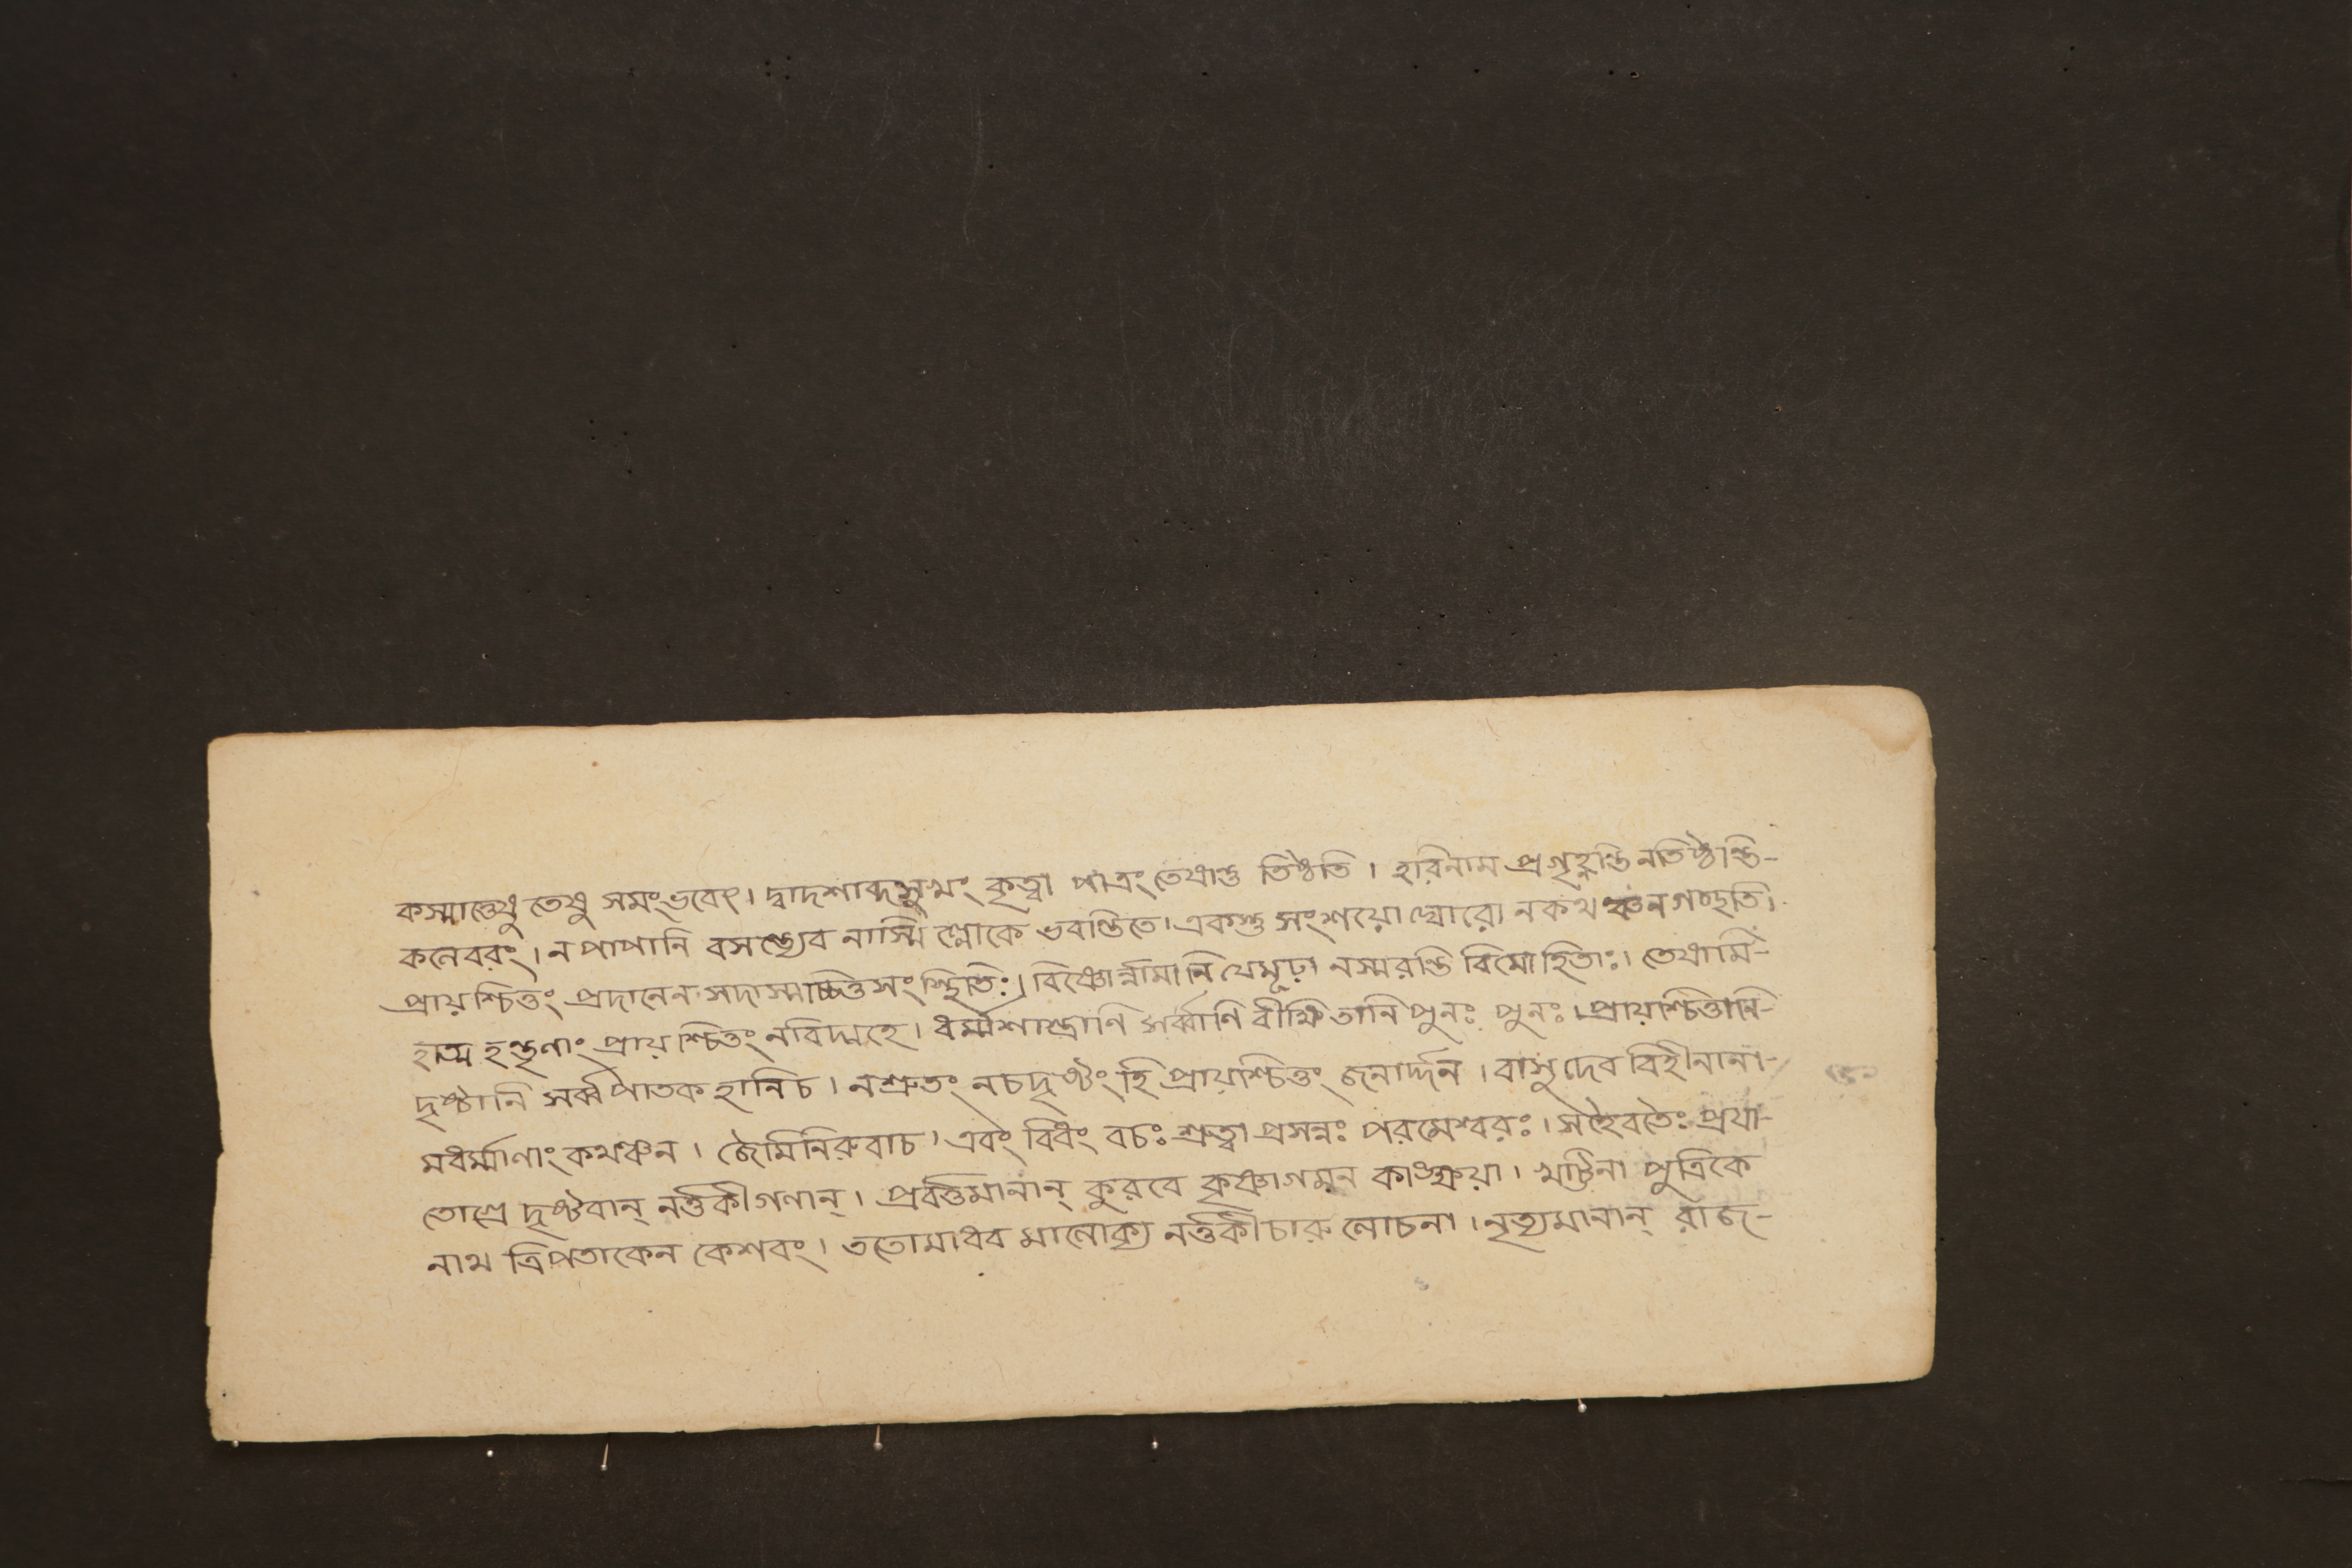 কস্মাত্তেষু তেষু সমং ভবেৎ। দ্বাদশাব্দসুখং কৃত্বা পাত্রং তেষান্তু তিষ্ঠতি। হরিনাম প্রগৃহ্ণন্তি নতিষ্ঠন্তি-
কলেবরং। ন পাপানি বসন্ত্যেব নাস্মি ল্লোকে ভবন্তিতে। একস্তু সংশয়ো ঘোরো নকথঞ্চনগচ্ছতি।
প্রায়শ্চিত্তং প্রদানেন সদাস্মাচ্চিত্তসংস্থিতিঃ। বিষ্ণোর্ন্নামানি যেমূঢ়া নস্মরন্তি বিমোহিতাঃ। তেষামি-
হাত্ম হন্তৃণাং প্রায়শ্চিত্তং নবিদ্মহে। ধর্ম্মশাস্ত্রাণি সর্ব্বাণি বীক্ষিতানি পুনঃ পুনঃ। প্রায়শ্চিত্তানি-
দৃষ্টানি সর্ব্বপাতক হানিচ। নশ্রুতং নচদৃষ্টং হি প্রায়শ্চিত্তং জনার্দ্দন। বাসুদেব বিহীনানা-
মধর্ম্মাণাং কথঞ্চন। জৈমিনিরুবাচ। এবং বিধং বচঃ শ্রুত্বা প্রসন্নঃ পরমেশ্বরঃ। সহৈবতৈঃ প্রযা-
তোগ্রে দৃষ্টবান্ নর্ত্তকীগণান্। প্রবর্ত্তমানান্ কুরবে কৃষ্ণাগমন কাঙ্ক্ষয়া। পুত্রিকে
নাথ ত্রিপতাকেন কেশবং। ততোমাধব মালোক্য নর্ত্তকী চারু লোচনা। নৃত্যমানান্ রাজ-